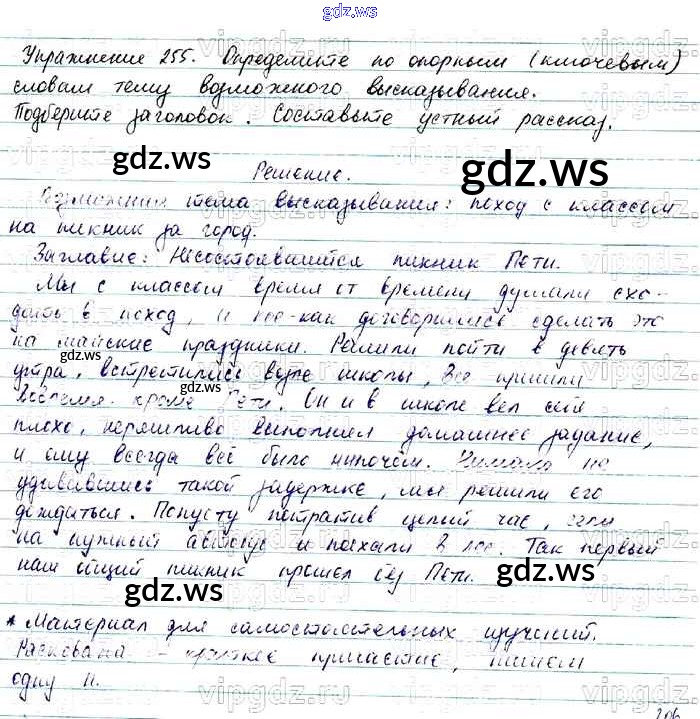 gdz.ws
Упражнение 255. Определите по опорным (ключевым)
словам тему возможного высказывания.
Подберите заголовок. Составьте устный рассказ.
gdz.ws gdz.ws
Решение.
Возможная тема высказывания: поход с классом
на пикник за город.
Заглавие: Несостоявшийся пикник Пети.
Мы с классом время от времени думали схо-
дить в поход, и кое-как договорились сделать это
на майские праздники. Решили пойти в девять
утра, встретились возле школы, все пришли
вовремя, кроме Пети. Он и в школе вел себя
плохо, неряшливо выполнял домашнее задание,
и ему всегда всё было нипочём. Нимало не
удивившись такой задержке, мы решили его
дождаться. Попусту потратив целый час, сели
на нужный автобус и поехали в лес. Так первый
наш общий пикник прошел без Пети.
gdz.ws gdz.ws
* Материал для самостоятельных изучений.
- краткое причастие, пишем
одну н.
206